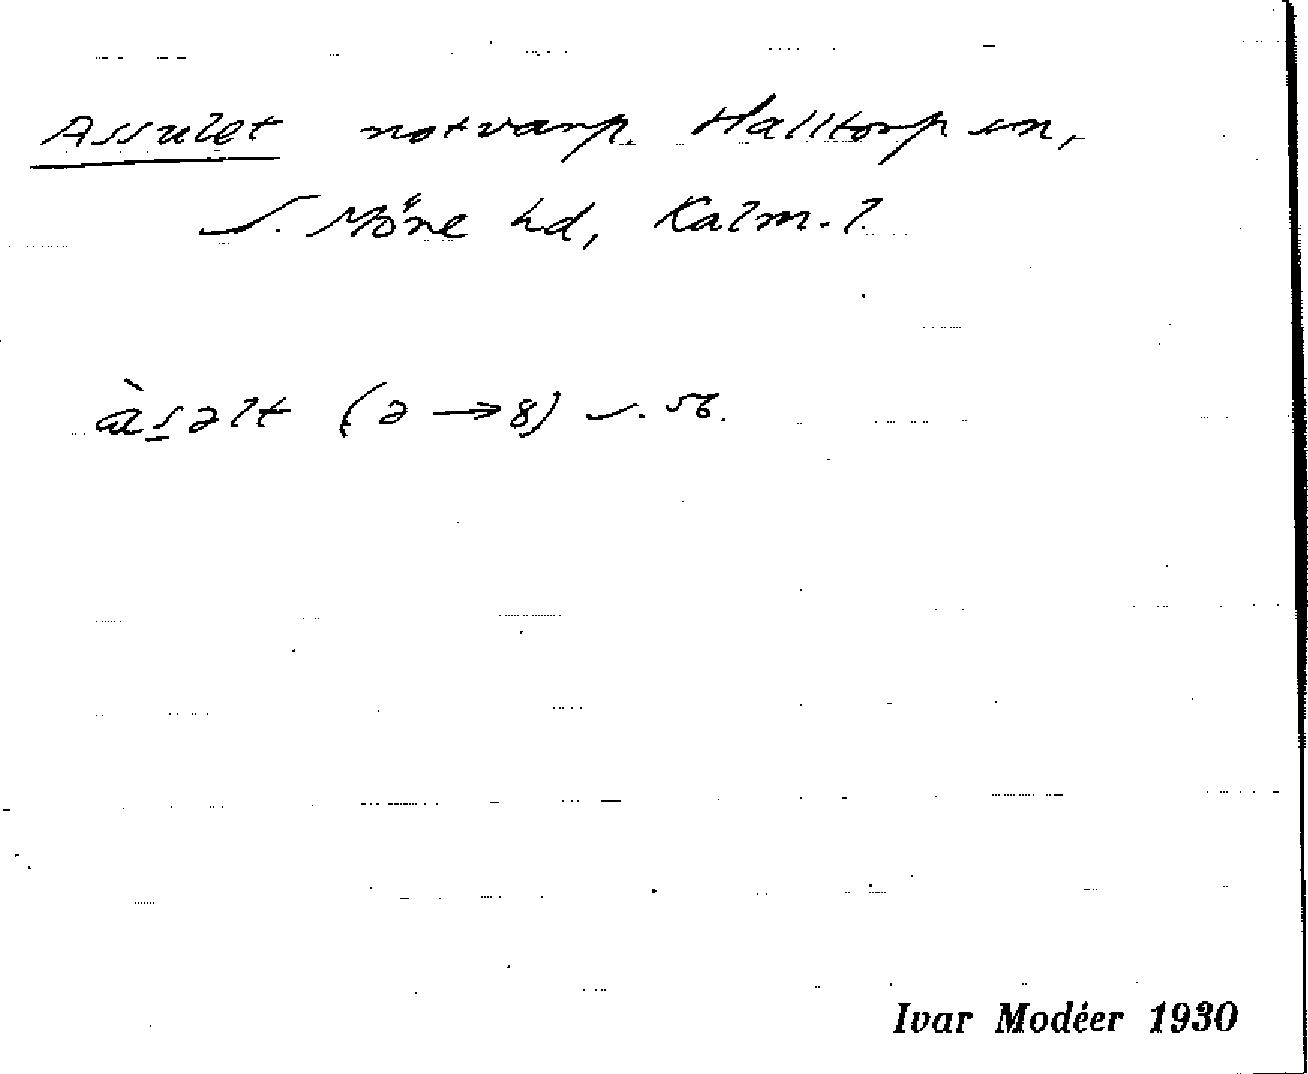 Assulet notvarp. Halltorp sn,
S. Möre hd, Kalm. l.
àsəlt (ə → 8) s. 56.
Ivar Modéer 1930